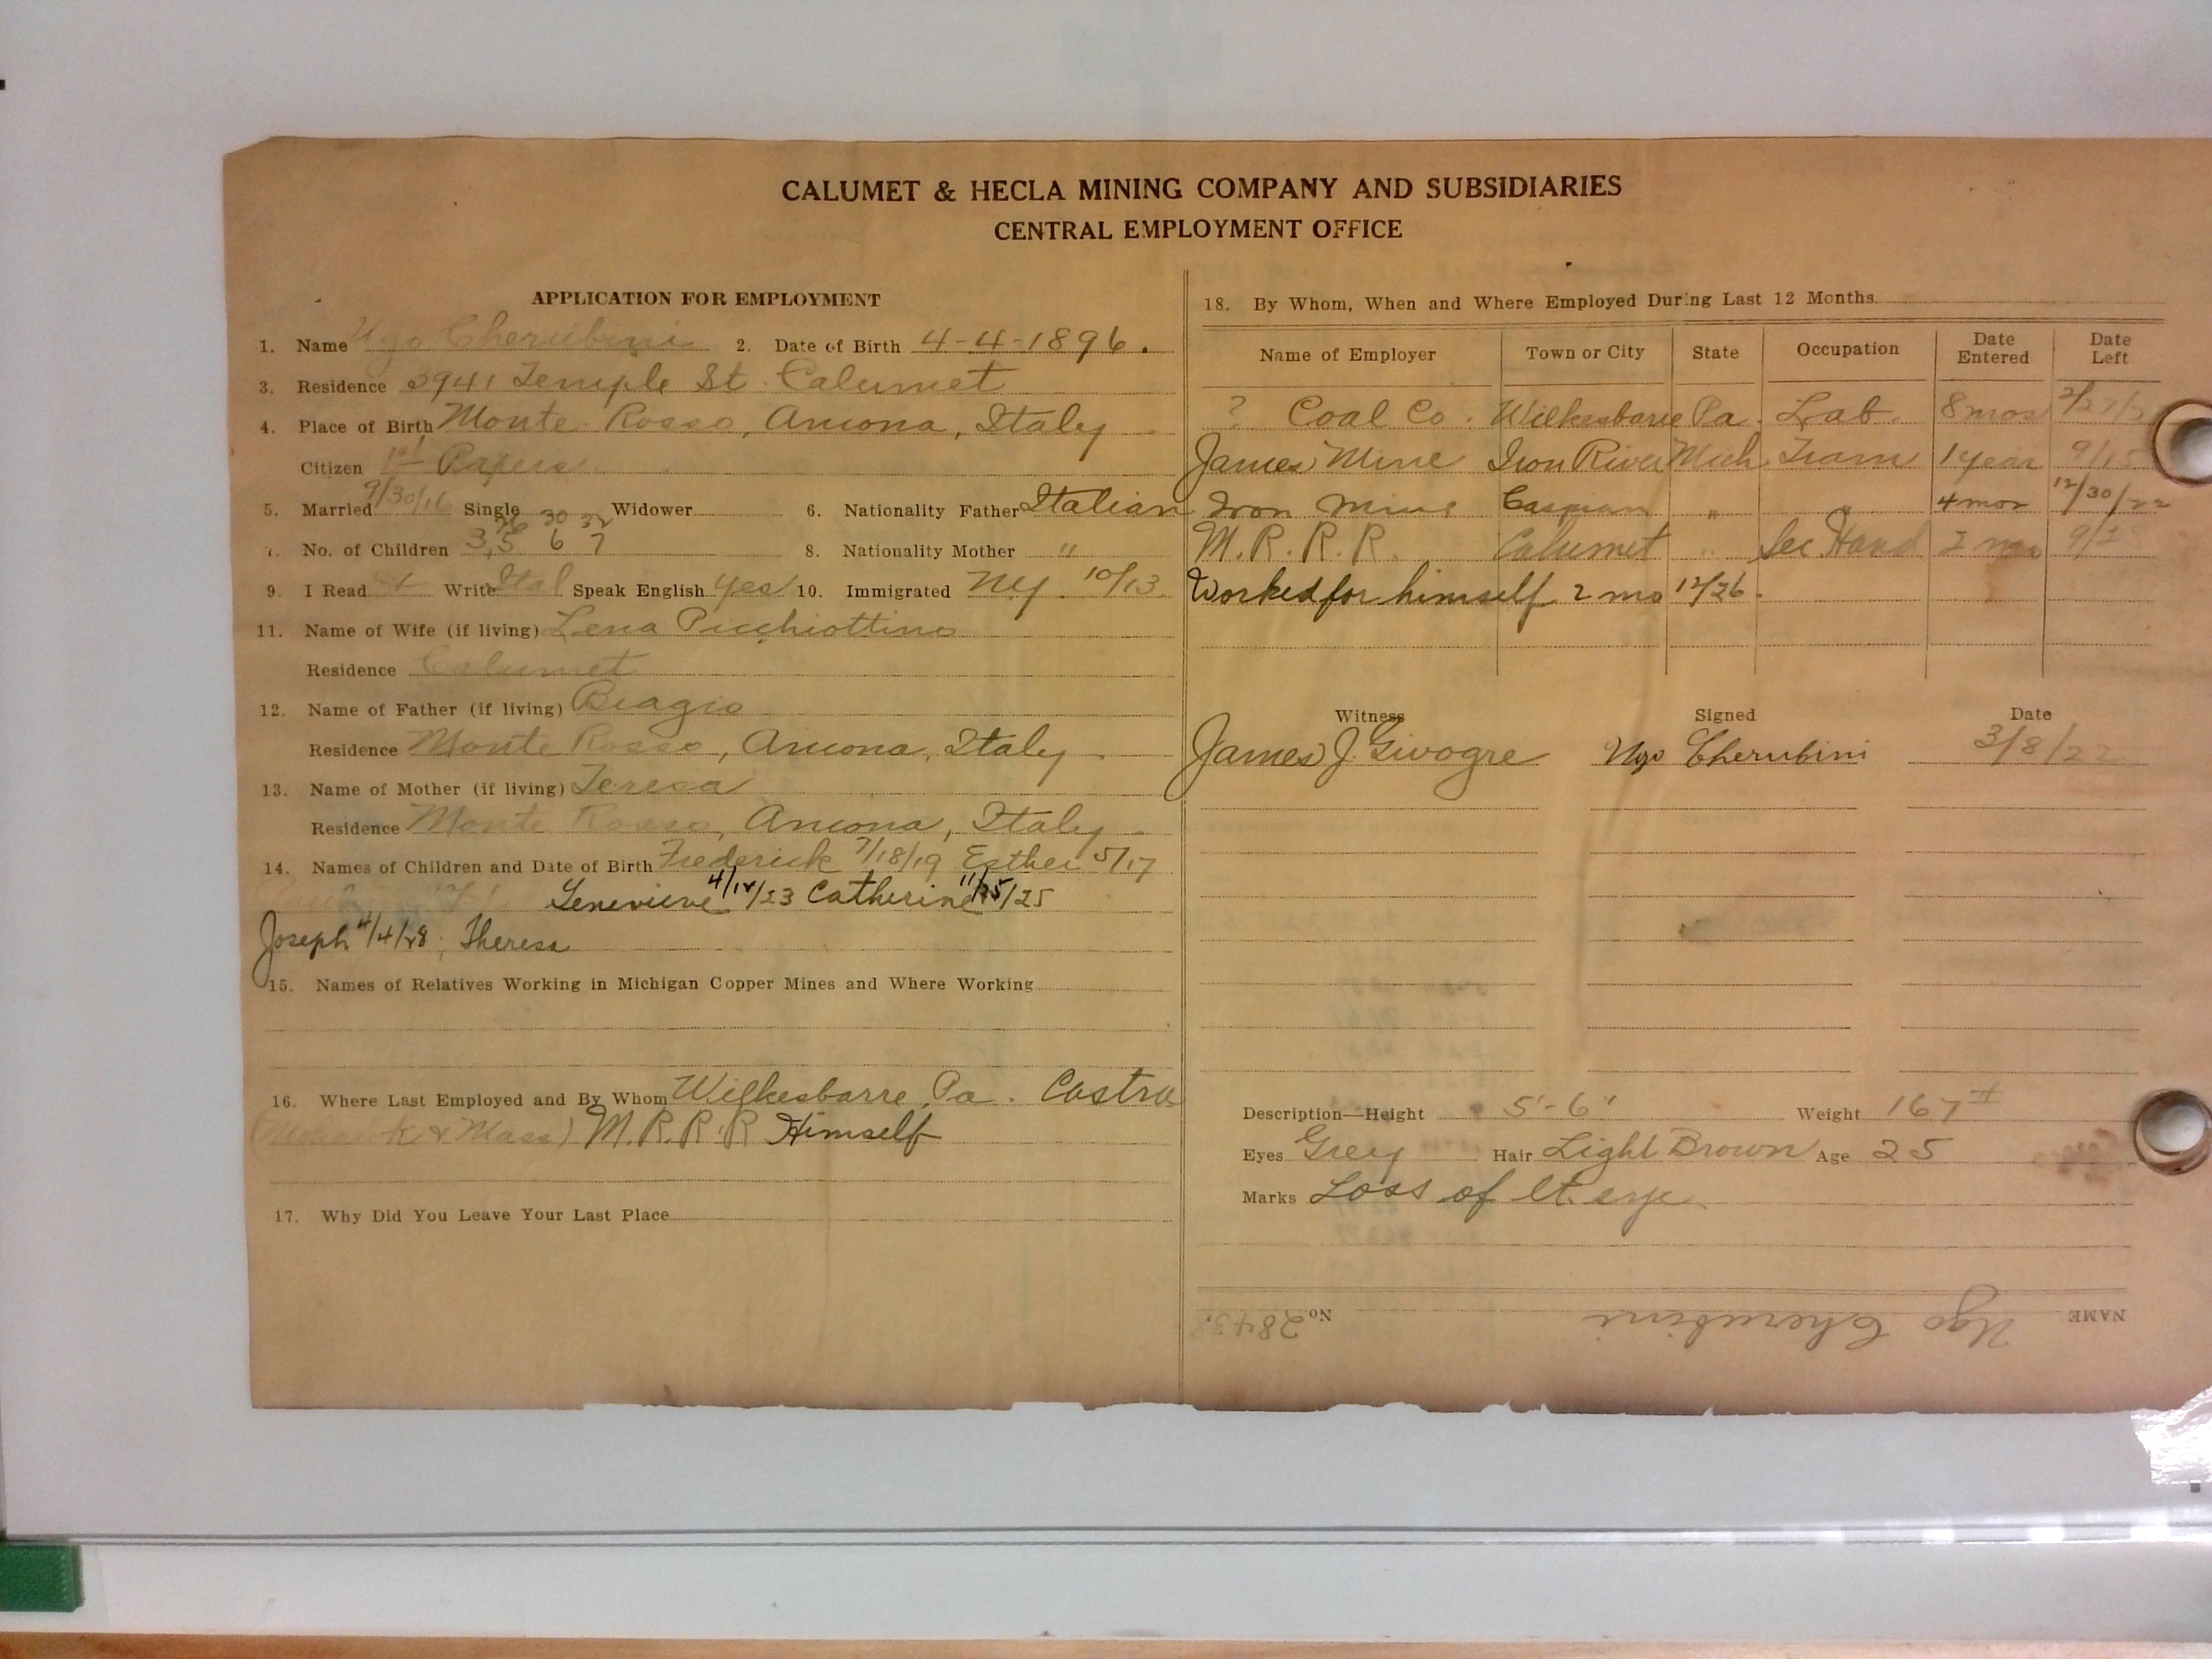 CALUMET & HECLA MINING COMPANY AND SUBSIDIARIES
CENTRAL EMPLOYMENT OFFICE
APPLICATION FOR EMPLOYMENT
1. Name Ugo Cherubini 2. Date of Birth 4-4-1896.
3. Residence 3941 Temple St. Calumet
4. Place of Birth Monte Rosso, Ancona, Italy
Citizen 1st Papers
5. Married 9/30/16 Single Widower 6. Nationality Father Italian
26 30 32
7. No. of Children 3, 5 6 7 8. Nationality Mother "
9. I Read + Write Ital Speak English yes 10. Immigrated NY. 10/13
11. Name of Wife (if living) Lena Picchiottino
Residence Calumet
12. Name of Father (if living) Biagio
Residence Monte Rosso, Ancona, Italy
13. Name of Mother (if living) Teresa
Residence Monte Rosso, Ancona, Italy
14. Names of Children and Date of Birth Frederick 7/18/19 Esther 5/17
Genevieve 4/12/23 Catherine 11/25/25
Joseph 4/4/28, Theresa
15. Names of Relatives Working in Michigan Copper Mines and Where Working
16. Where Last Employed and By Whom Wilkesbarre, Pa. Castra
(Mohawk & Mass) M.R.R.R Himself
17. Why Did You Leave Your Last Place
18. By Whom, When and Where Employed During Last 12 Months
Name of Employer Town or City State Occupation Date Entered Date Left
? Coal Co. Wilkesbarre Pa. Lab. 8 mos 2/27/2
James Mine Iron River Mich Tram 1 year 9/15
Iron Mine Caspian " " 4 mos 12/30/22
M.R.R.R. Calumet " Sec Hand 2 mo 9/2
Worked for himself 2 mo 12/26.
Witness Signed Date
James J. Givogre Ugo Cherubini 3/8/22
Description—Height 5'-6" Weight 167#
Eyes Grey Hair Light Brown Age 25
Marks Loss of lt. eye
NAME Ugo Cherubini No. 28438